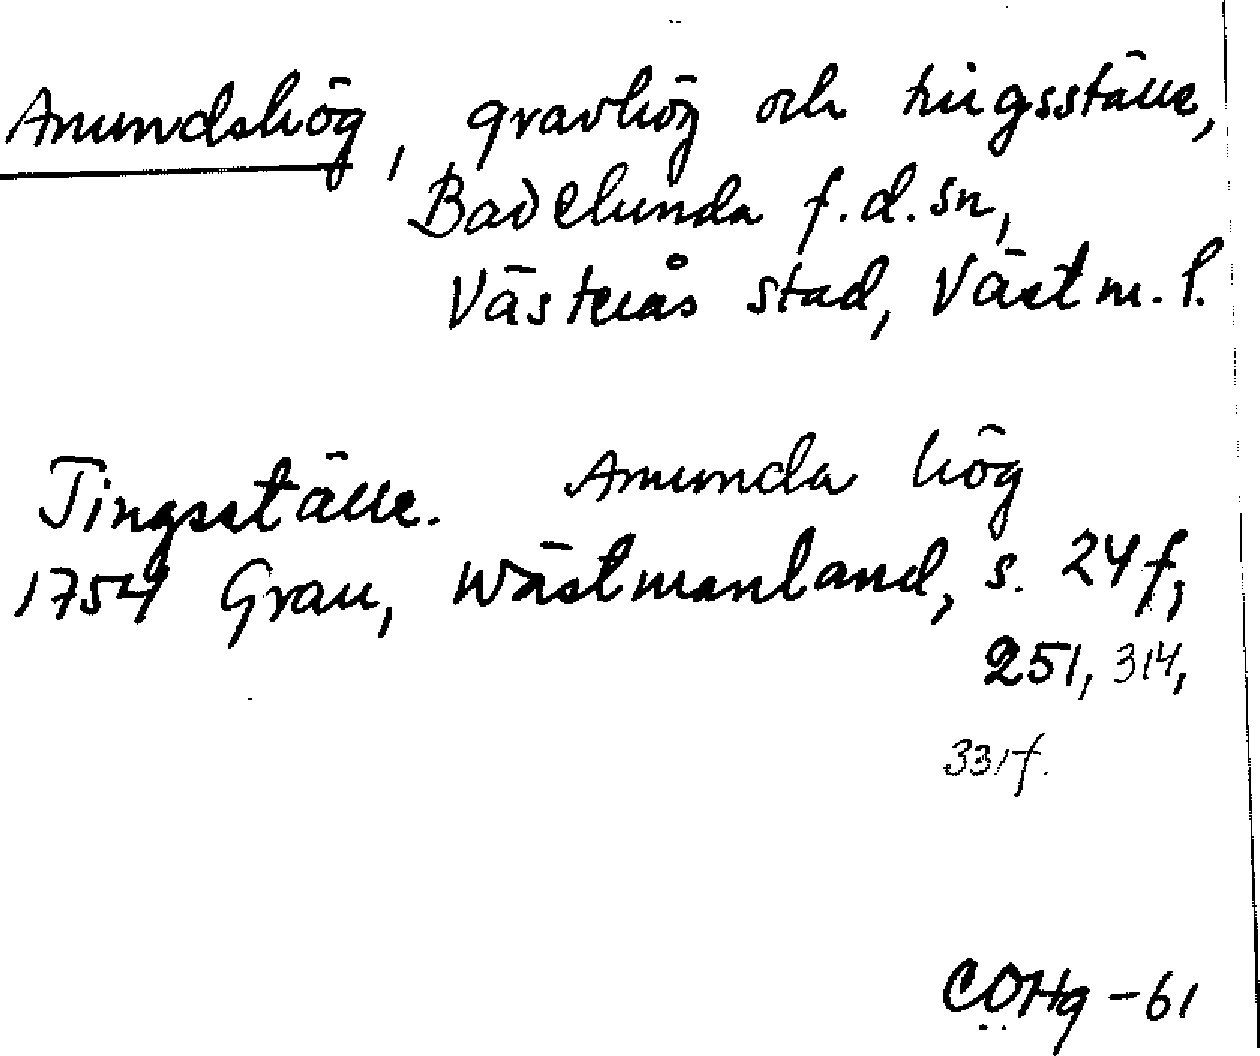 Anundshög, gravhög och tingsställe,
Badelunda f.d. sn,
Västerås stad, Västm. l.
Tingsställe. Anunda hög
1754 Grau, Wästmanland, s. 24f,
251, 314,
331f.
CÖHg -61